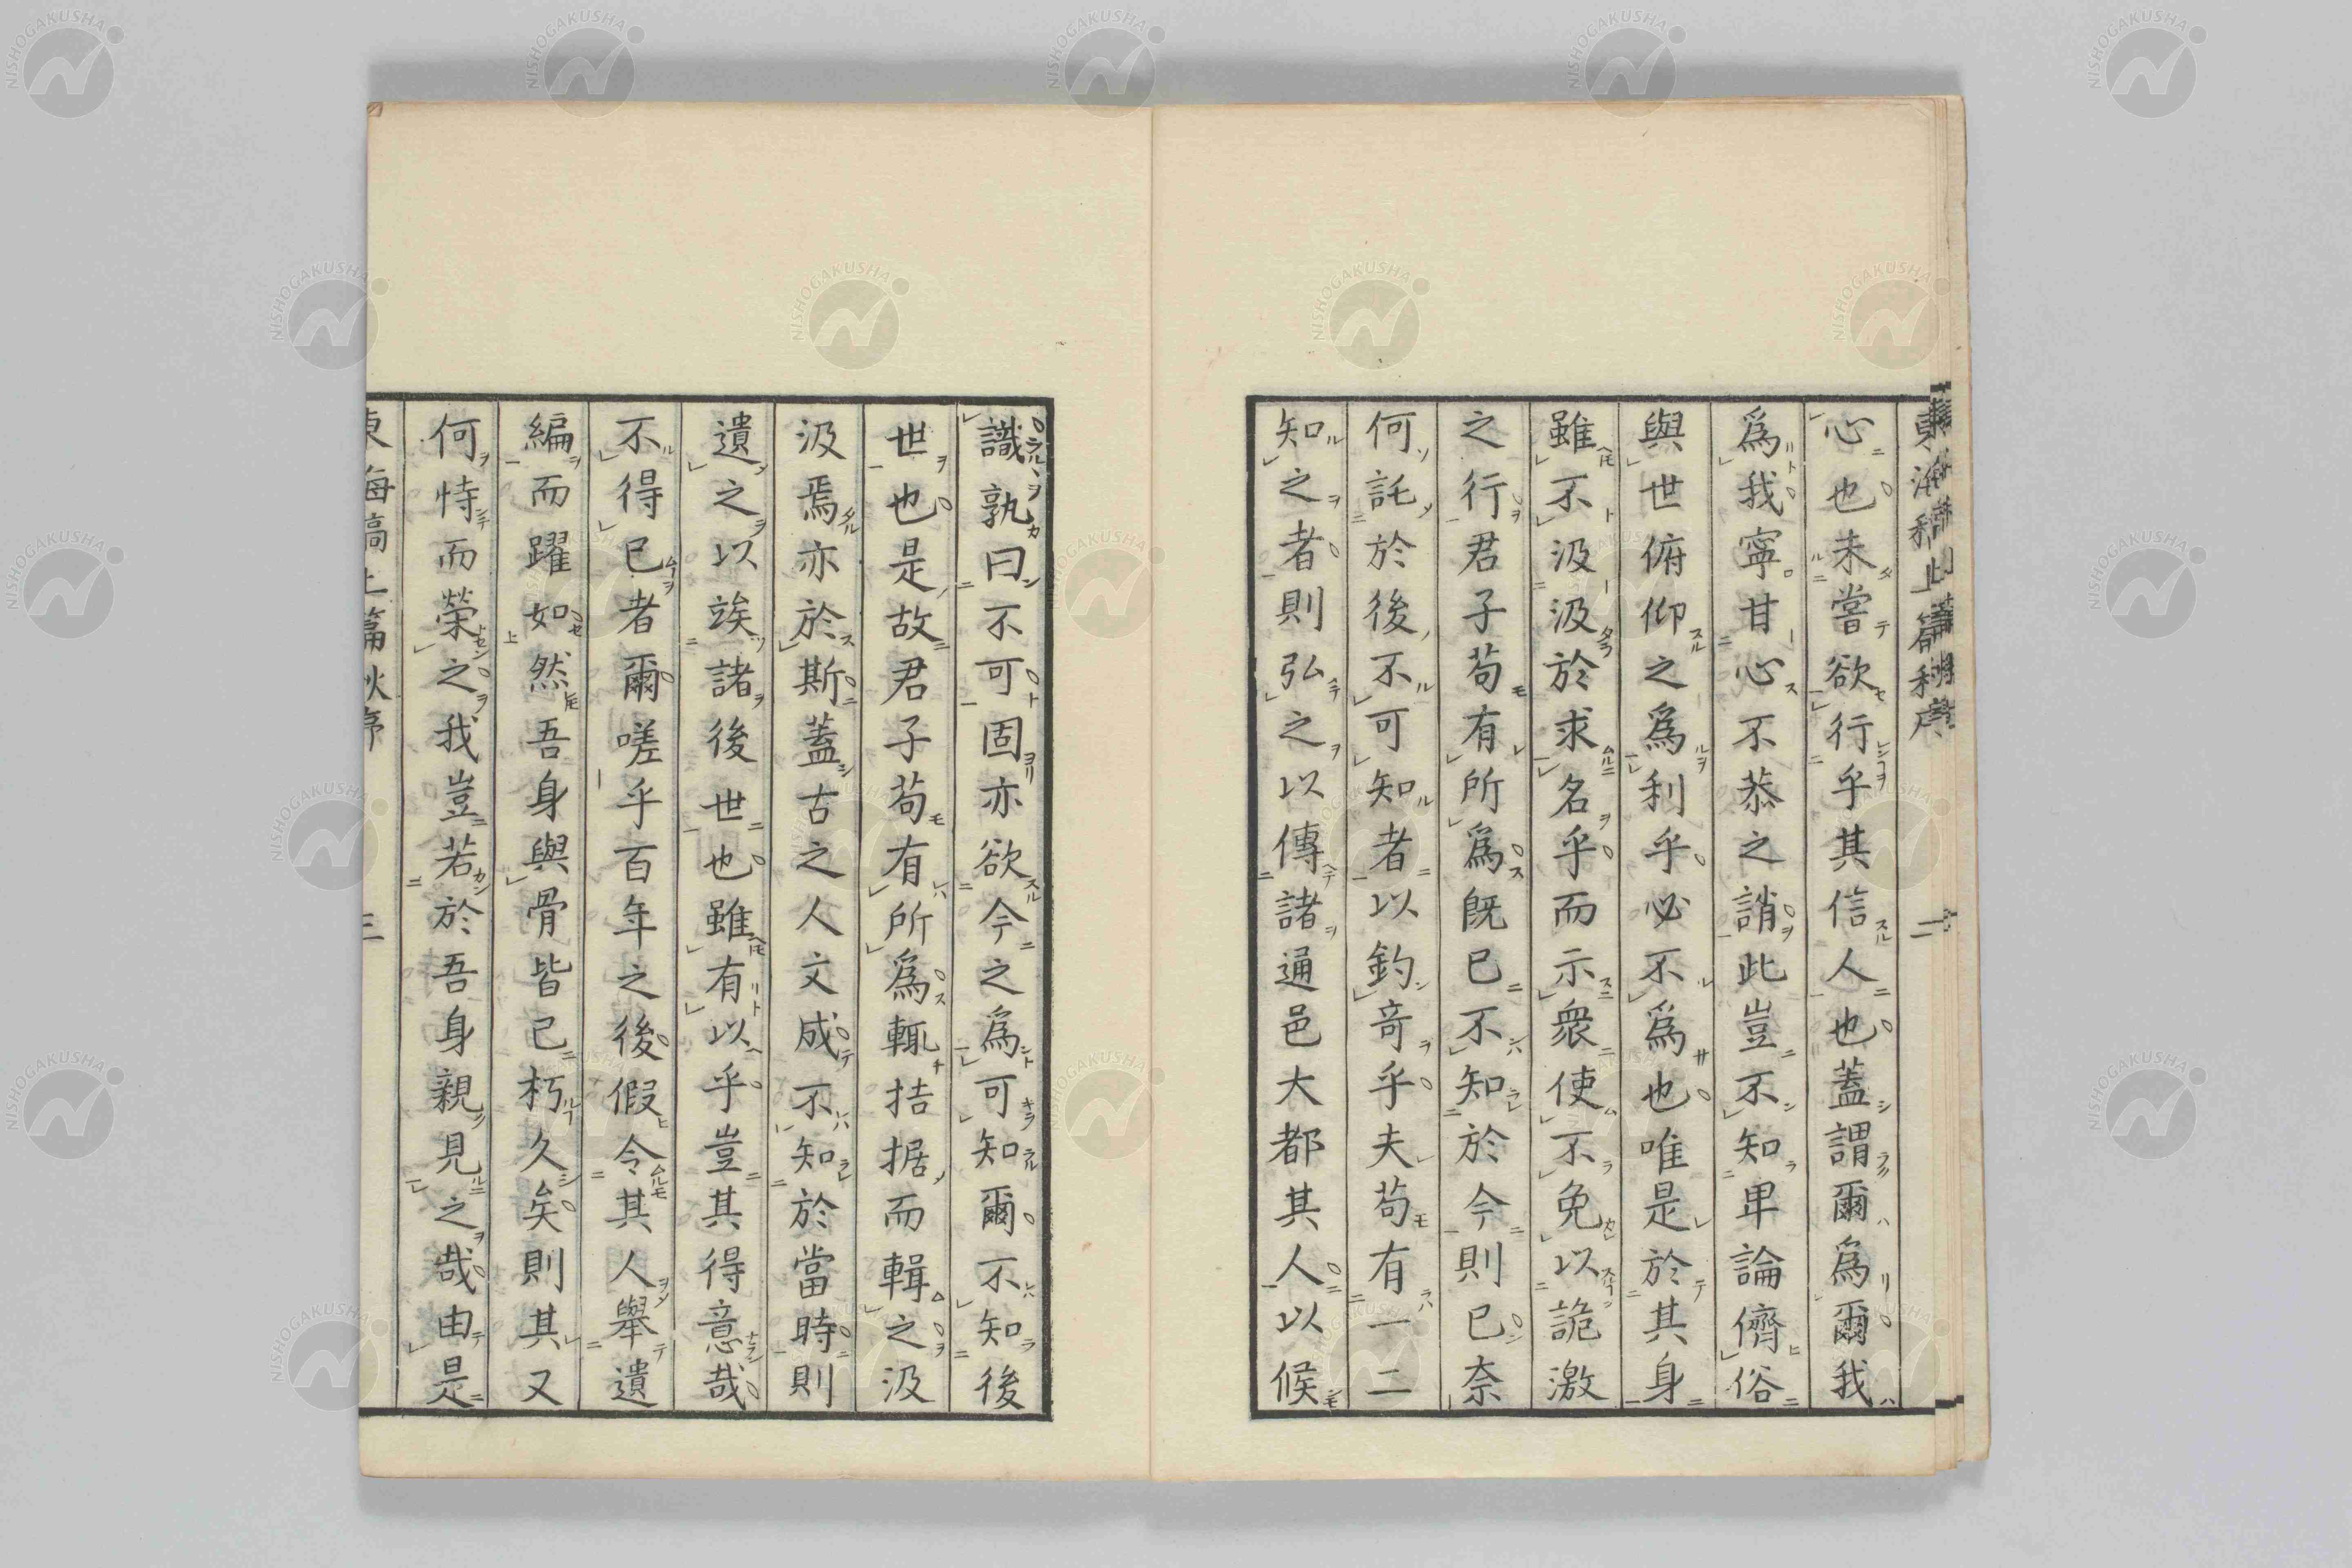 心也未嘗欲行乎其信人也蓋謂爾爲爾我
爲我寧甘心不恭之誚此豈不知卑論儕俗
與世俯仰之爲利乎必不爲也唯是於其身
雖不汲汲於求名乎而示衆使不免以詭激
之行君子苟有所爲既已不知於今則已奈
何託於後不可知者以釣奇乎夫苟有一二
知之者則弘之以傳諸通邑大都其人以候
識孰曰不可固亦欲今之爲可知爾不知後
世也是故君子苟有所爲輒拮据而輯之汲
汲焉亦於斯蓋古之人文成不知於當時則
遺之以竢諸後世也雖有以乎豈其得意哉
不得已者爾嗟乎百年之後假令其人舉遺
編而躍如然吾身與骨皆已朽久矣則其又
何恃而榮之我豈若於吾身親見之哉由是
三
NISHOGAKUSHA